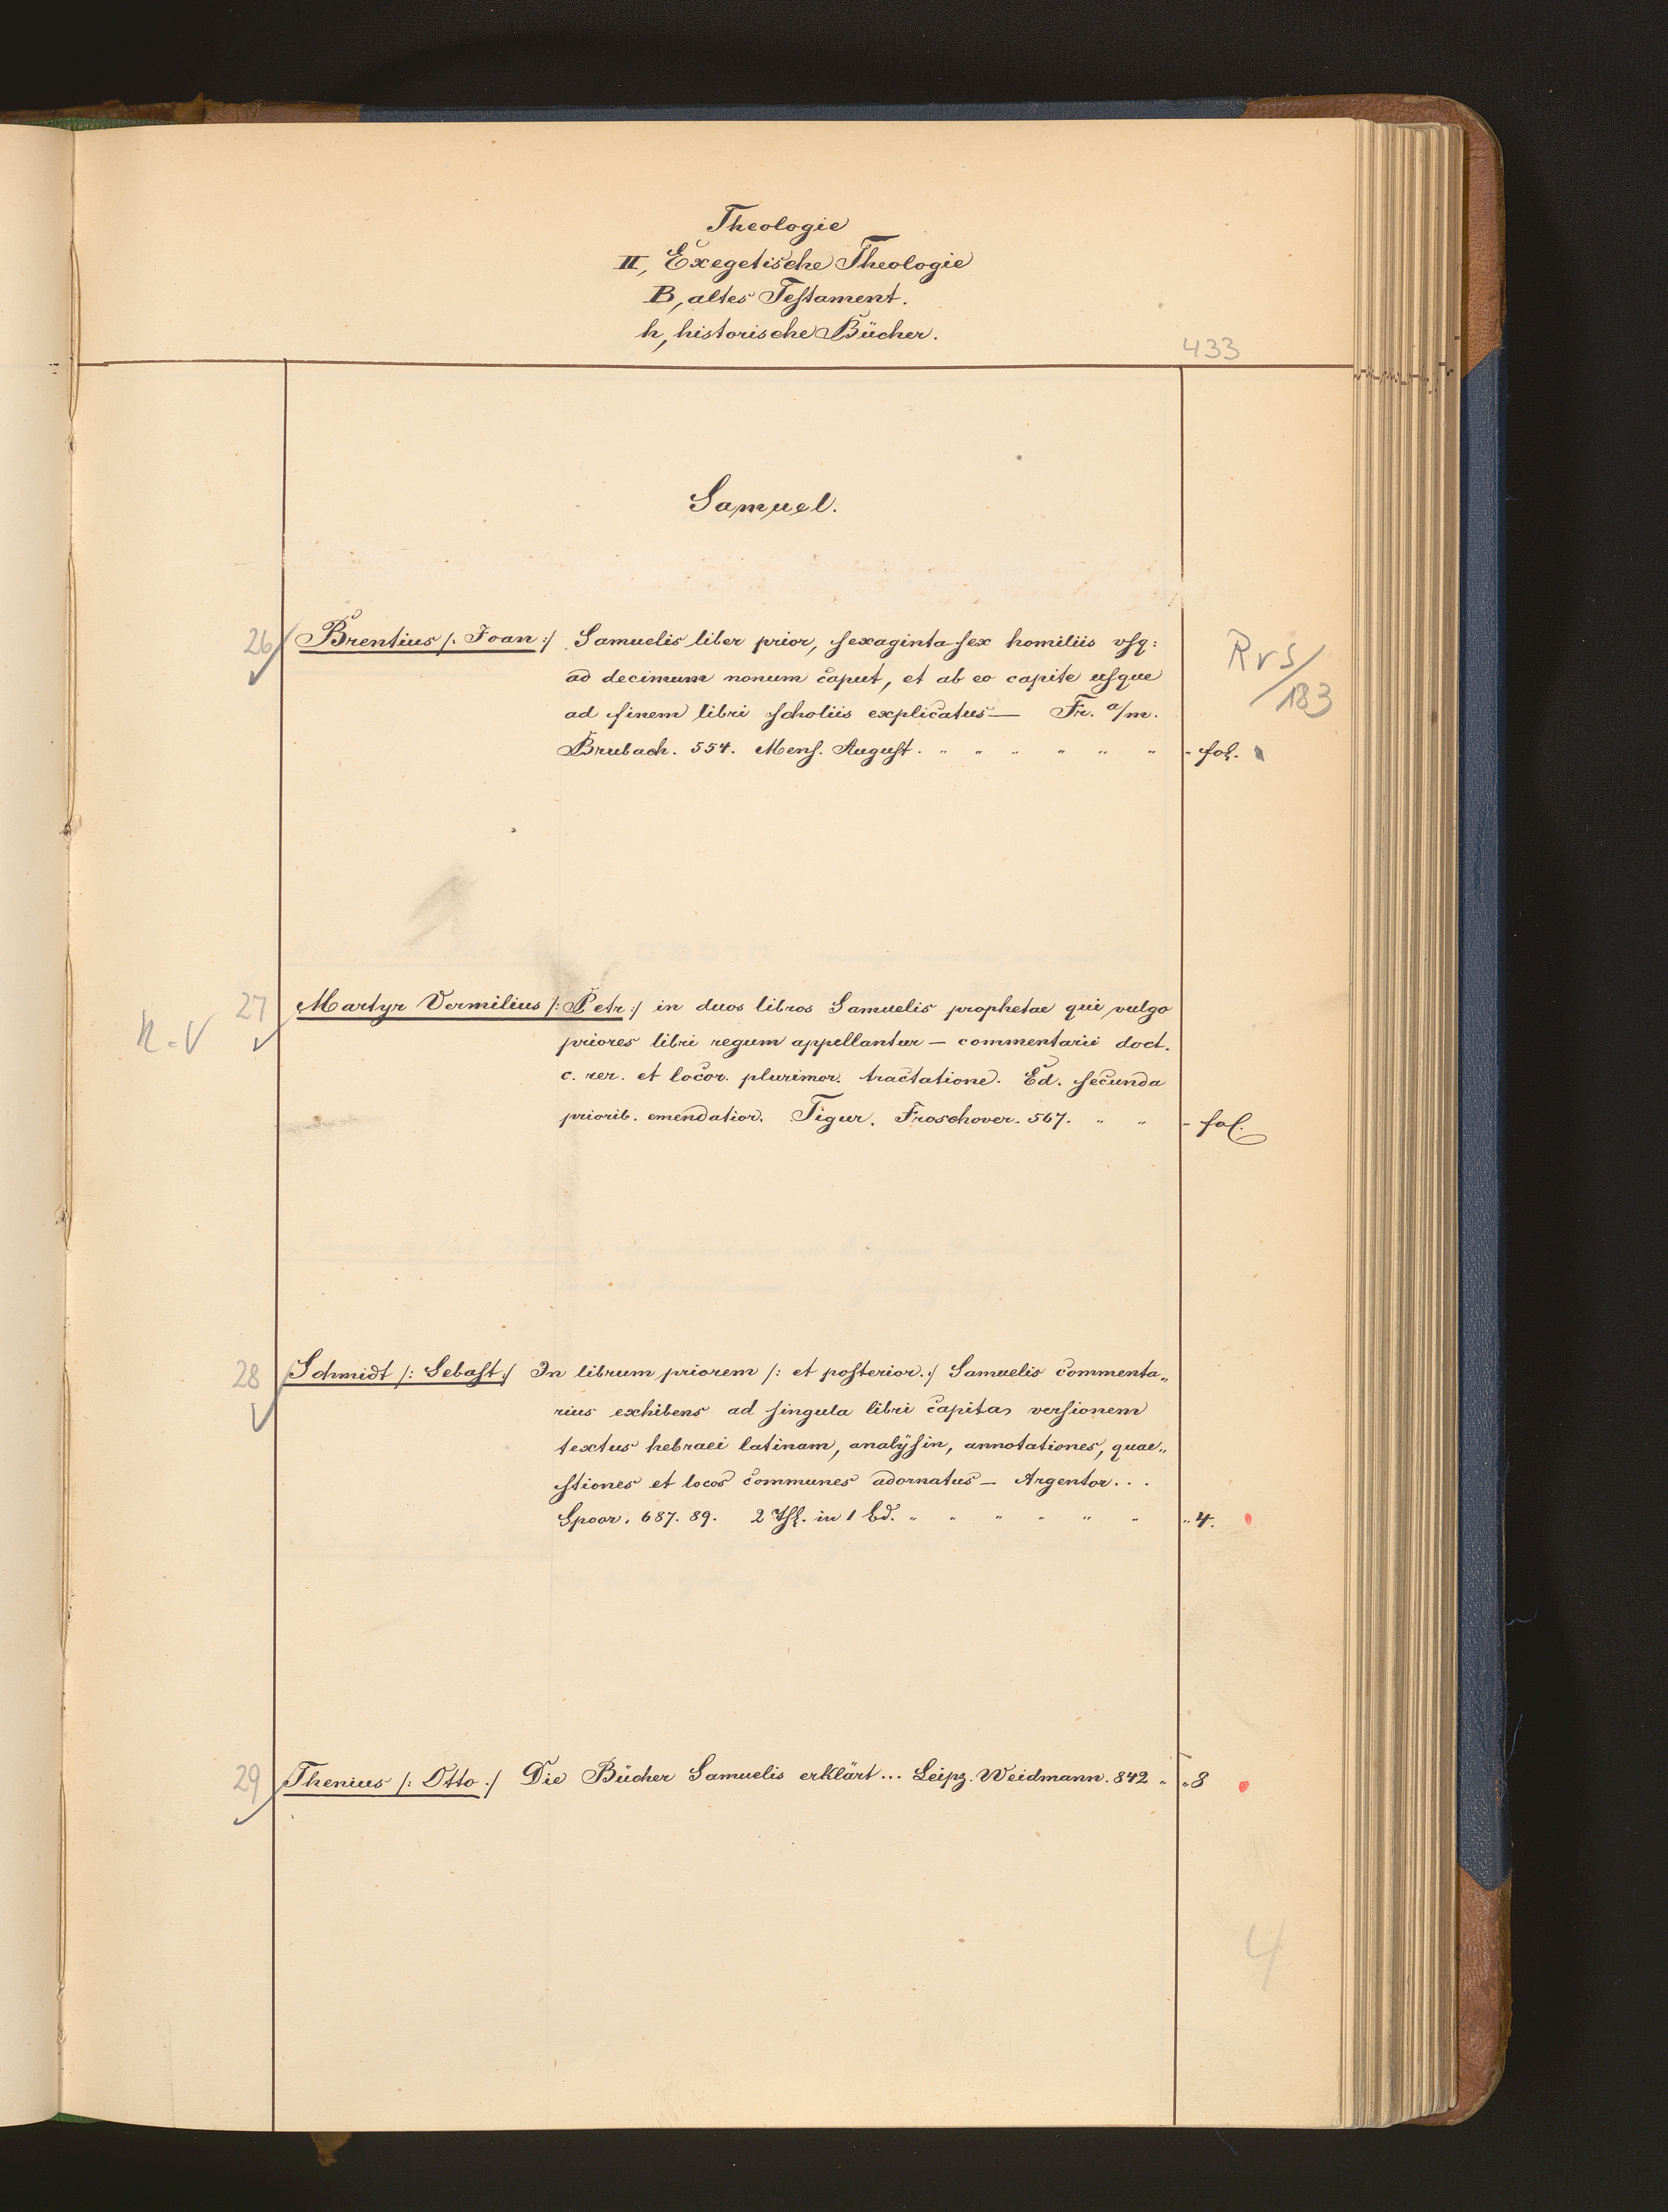 Theologie
II, Exegetische Theologie
B, altes Testament.
h, historische Bücher.
433
Samuel.
26 Brentius /: Joan :/ Samuelis liber prior, sexaginta sex homiliis vsq:
ad decimum nonum caput, et ab eo capite usque
ad finem libri scholiis explicatus — Fr. a/m.
Brubach. 554. Mens. August. " " " " " " " fol.
Rvs/
183
27 Martyr Vermilius /: Petr :/ in duos libros Samuelis prophetae qui vulgo
priores libri regum appellantur — commentarii doct.
c. rer. et locor. plurimor. tractatione. Ed. secunda
priorib. emendatior. Tigur. Froschover. 567. " " " fol.
28 Schmidt /: Sebast :/ In librum priorem /: et posterior. :/ Samuelis commenta„
rius exhibens ad singula libri capita versionem
textus hebraei latinam, analÿsin, annotationes, quae„
stiones et locos communes adornatus — Argentor...
Spoor. 687. 89. 2 Thl. in 1 Bd. " " " " " " " 4.
29 Thenius /: Otto :/ Die Bücher Samuelis erklärt... Leipz. Weidmann. 842 " " 8
4